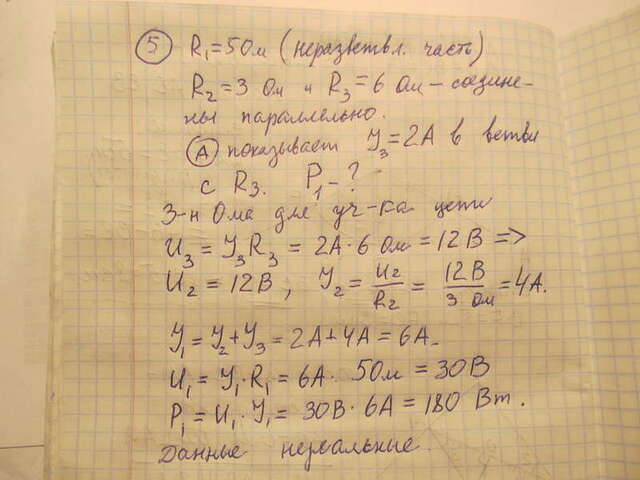 5 R₁=5Ом (неразветвл. часть)
R₂=3 Ом и R₃=6 Ом – соедине-
ны параллельно.
А показывает У₃=2А в ветви
с R₃. P₁ – ?
З-н Ома для уч-ка цепи
U₃ = У₃R₃ = 2А·6 Ом = 12В =>
U₂ = 12В, У₂ = U₂/R₂ = 12В/3 Ом = 4А.
У₁ = У₂+У₃ = 2А+4А = 6А.
U₁ = У₁·R₁ = 6А· 5Ом = 30В
P₁ = U₁·У₁ = 30В·6А = 180 Вт.
Данные нереальные.